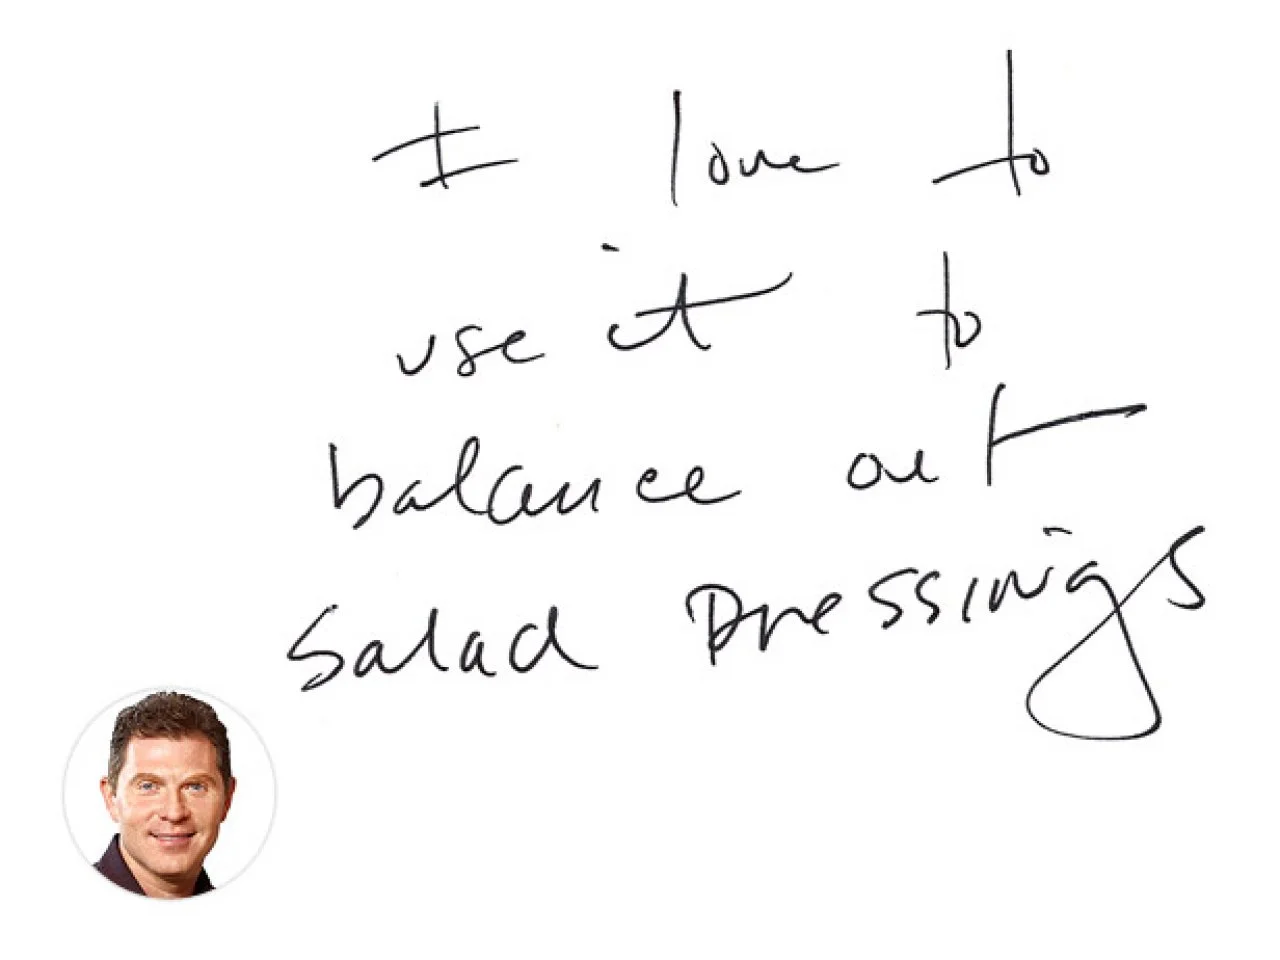 I love to
use it to
balance out
Salad Dressings